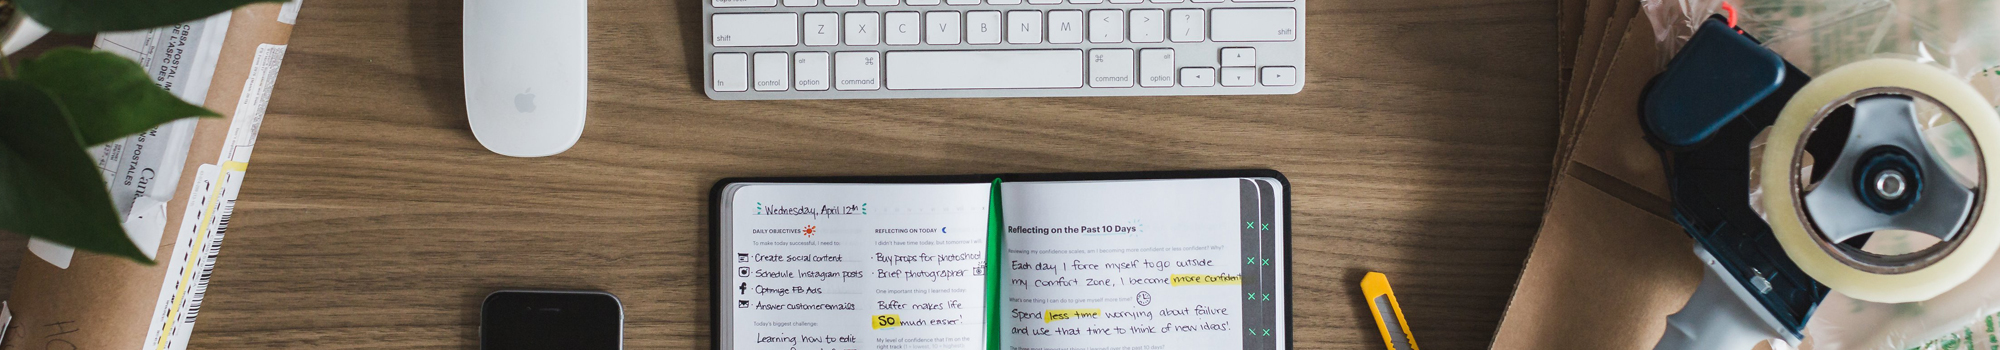 CBSA POSTAL IM
DE L'ASFC DES
NS POSTALES
Cana
caps lock
shift
Z
X
C
V
B
N
M
<
,
>
.
?
/
shift
fn
control
alt
option
⌘
command
⌘
command
alt
option
Wednesday, April 12th
DAILY OBJECTIVES
To make today successful, I need to:
Create social content
Schedule Instagram posts
Optmize FB Ads
Answer customer emails
Today's biggest challenge:
Learning how to edit
REFLECTING ON TODAY
I didn't have time today, but tomorrow I will
· Buy props for photoshoot
· Brief photographer
One important thing I learned today:
Buffer makes life
SO much easier!
My level of confidence that I'm on the
right track
Reflecting on the Past 10 Days
Reviewing my confidence scales, am I becoming more confident or less confident? Why?
Each day I force myself to go outside
my comfort zone, I become more confident
What's one thing I can do to give myself more time?
Spend less time worrying about failure
and use that time to think of new ideas!